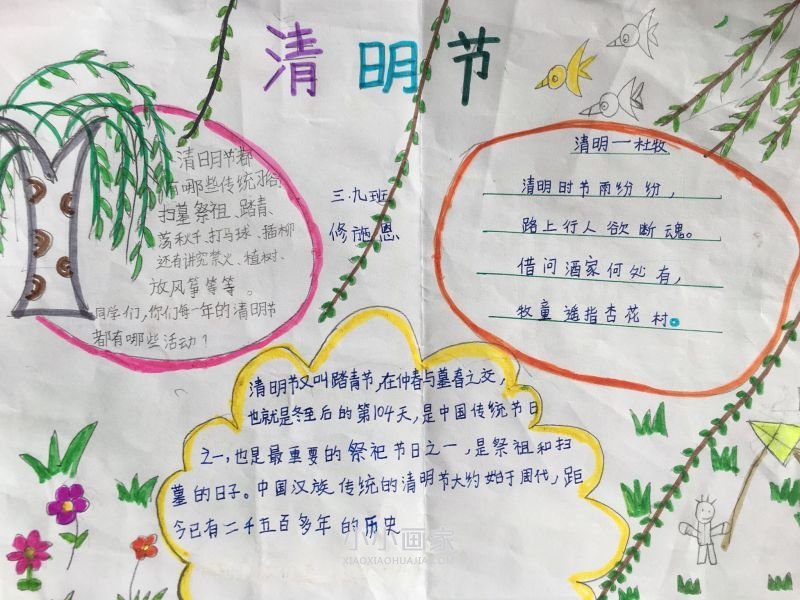 清明节
清日月节都
有哪些传统习俗
扫墓祭祖、踏青、
荡秋千、打马球、插柳
还有讲究禁火、植树、
放风筝等等。
同学们,你们每一年的清明节
都有哪些活动?
三.九班
修施恩
清明——杜牧
清明时节雨纷纷,
路上行人欲断魂。
借问酒家何处有,
牧童遥指杏花村。
清明节又叫踏青节,在仲春与暮春之交,
也就是冬至后的第104天,是中国传统节日
之一,也是最重要的祭祀节日之一,是祭祖和扫
墓的日子。中国汉族传统的清明节大约始于周代,距
今已有二千五百多年的历史
小小画家
XIAOXIAOHUAJIA.COM